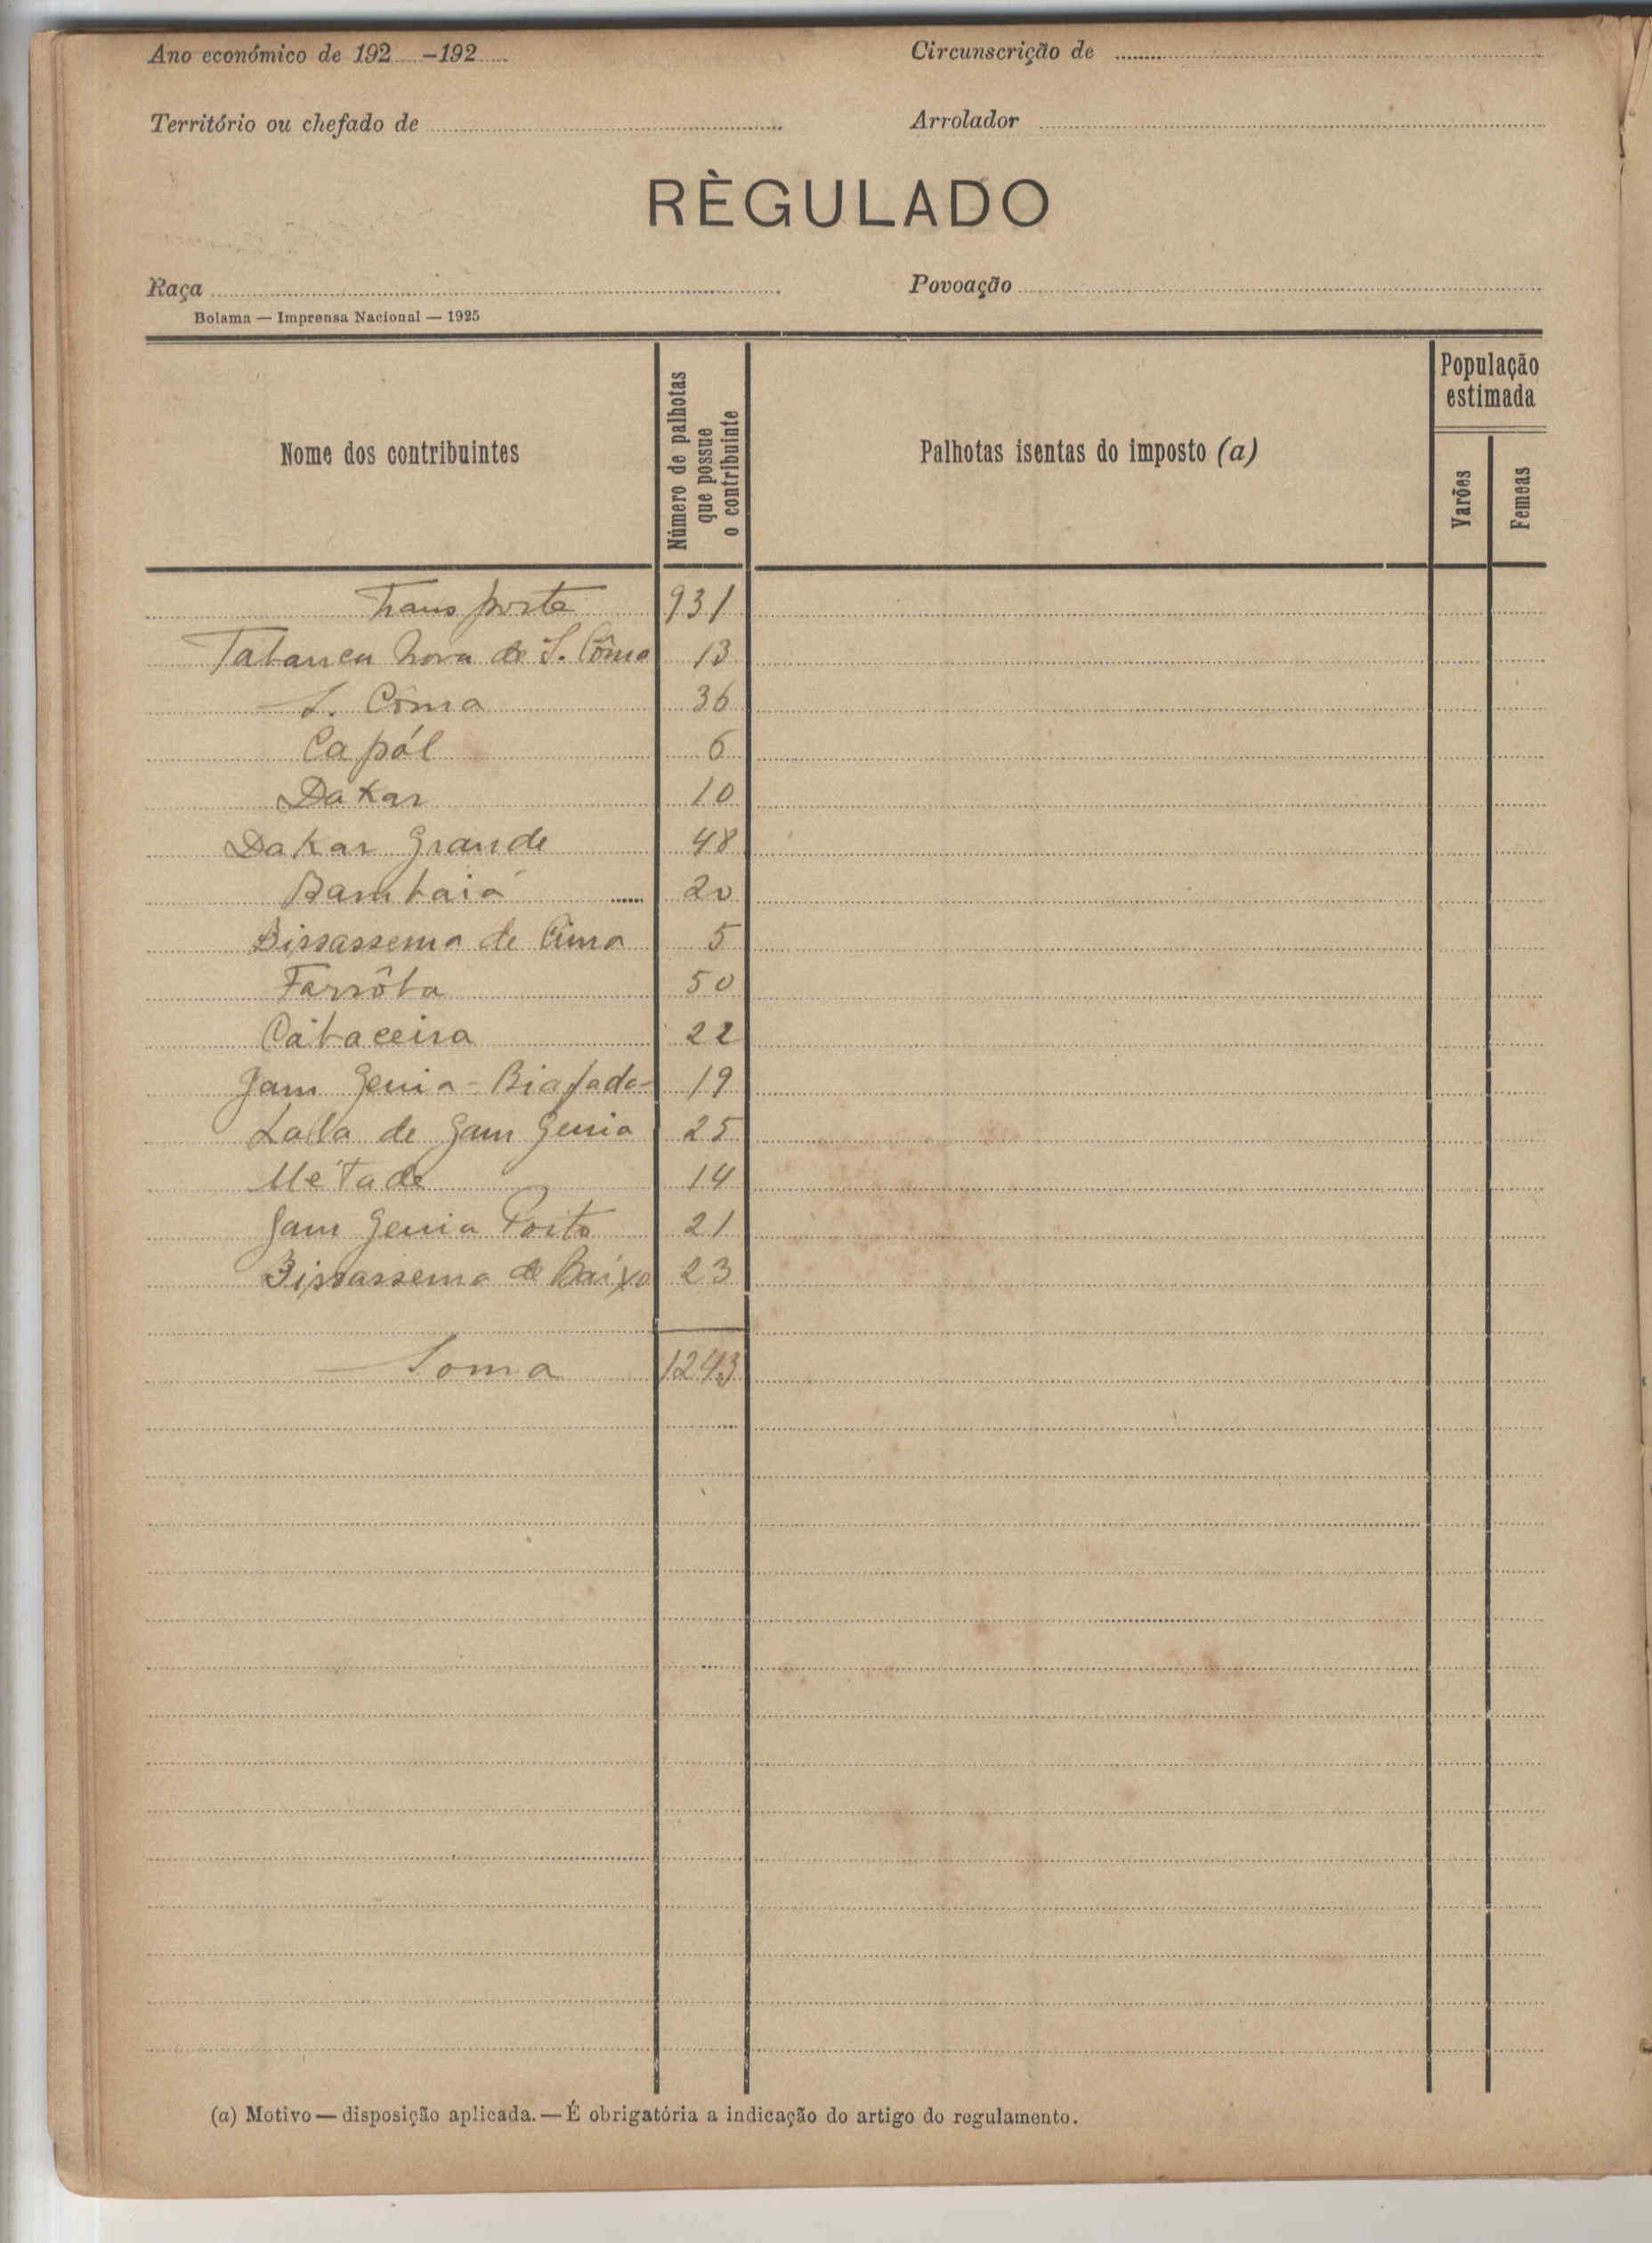 Ano económico de 192.....-192.....
Circunscrição de
Território ou chefado de
Arrolador
RÈGULADO
Raça
Povoação
Bolama — Imprensa Nacional — 1925
Nome dos contribuintes
Número de palhotas que possue o contribuinte
Palhotas isentas do imposto (a)
População estimada
Varões
Femeas
Transporte 931
Tabanca Nova de S. Côma 13
S. Côma 36
Capól 6
Dakar 10
Dakar Grande 48
Bambaiá 20
Bissassema de Cima 5
Farrôba 50
Cabaceira 22
Gam Genia - Biafada - 19
Lalla de Gam Genia 25
Metade 14
Gam Genia Porto 21
Bissassema de Baixo 23
Soma 1243
(a) Motivo — disposição aplicada. — É obrigatória a indicação do artigo do regulamento.